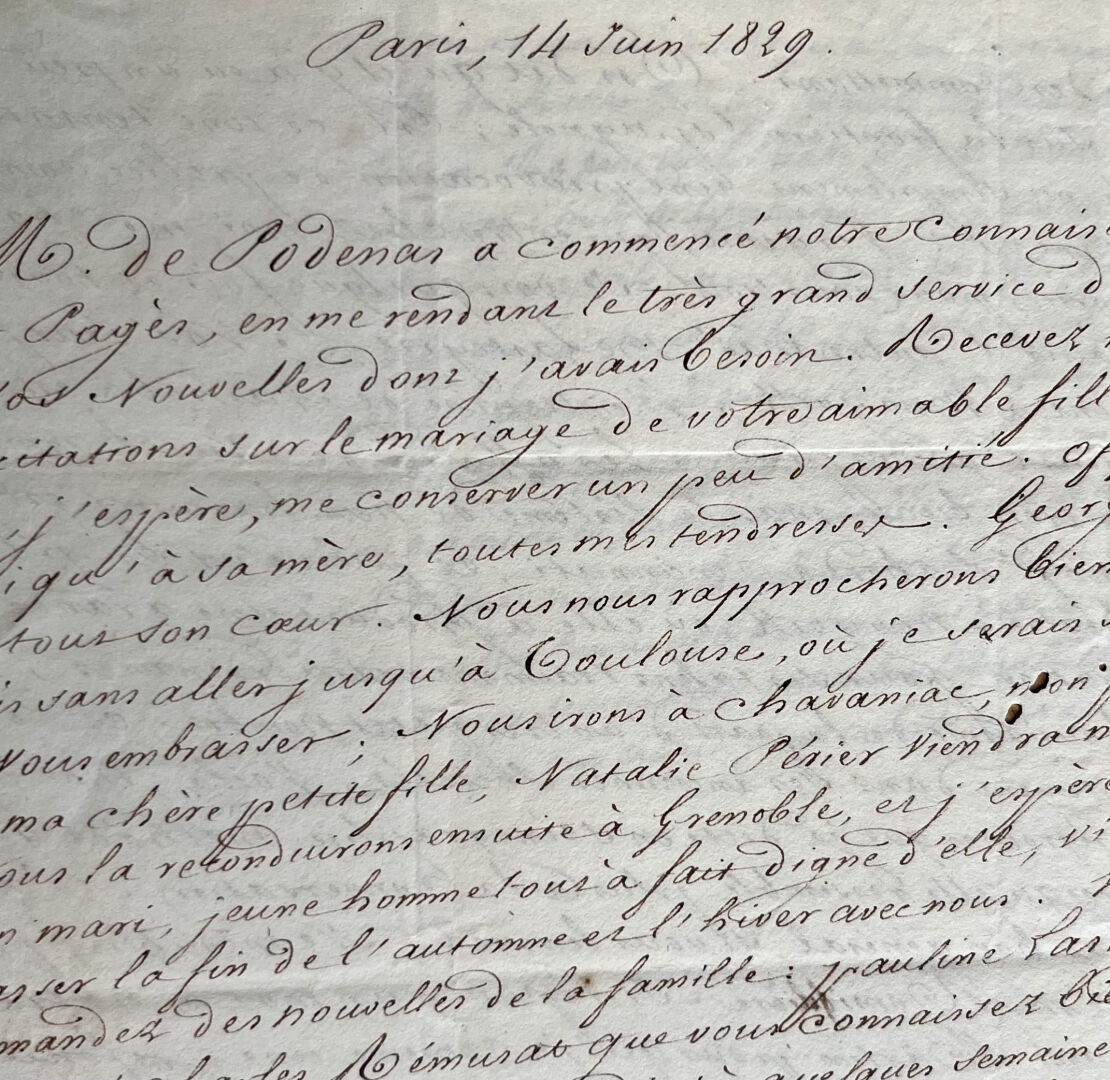 Paris, 14 Juin 1829.
M. de Podenas a commencé notre Connais
Pagès, en me rendant le très grand service d
os Nouvelles dont j'avais besoin. Recevez
citations sur le mariage de votre aimable fill
, j'espère, me conserver un peu d'amitié. Of
i qu'à sa mère, toutes mes tendresses. Georg
tout son cœur. Nous nous rapprocherons bien
is sans aller jusqu'à Toulouse, où je serais s
vous embrasser; Nous irons à Chavaniac, mon j
ma chère petite fille, Natalie Périer viendra n
ous la reconduirons ensuite à Grenoble, et j'espère
n mari, jeune homme tout à fait digne d'elle, vi
asser la fin de l'automne et l'hiver avec nous.
mandez des nouvelles de la famille: pauline Las
Rémusat que vous Connaissez bie
à quelques semaine